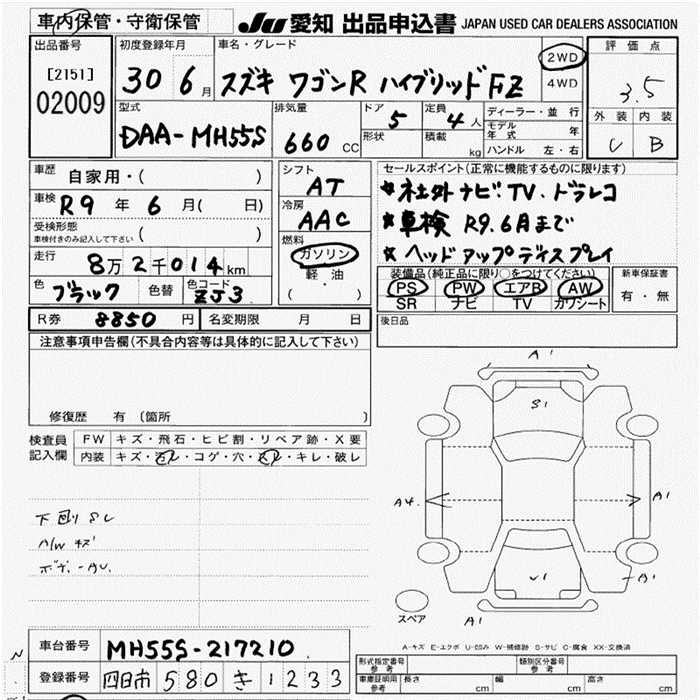 車内保管・守衛保管
JU 愛知 出品申込書 JAPAN USED CAR DEALERS ASSOCIATION
出品番号
[2151]
02009
初度登録年月
30 6月
車名・グレード
スズキ ワゴンR ハイブリッドFZ
2WD
4WD
評価点
3.5
外装 内装
C B
型式
DAA-MH55S
排気量
660 CC
ドア 5
形状
定員 4人
積載 kg
ディーラー・並行
モデル年式 年
ハンドル 左・右
車歴 自家用・( )
車検 R9年 6月( 日)
受検形態
車検付きのみ記入して下さい ( )
走行 8万2千014km
色 ブラック 色替 色コード ZJ3
シフト
AT
冷房
AAC
燃料
ガソリン
軽油
( ・ )
セールスポイント(正常に機能するものに限ります)
★社外ナビ.TV.ドラレコ
★車検 R9.6月まで
★ヘッドアップディスプレイ
装備品(純正品に限り○をつけてください)
PS PW エアB AW
SR ナビ TV カワシート
新車保証書
有・無
R券 8850円 名変期限 月 日
後日品
注意事項申告欄(不具合内容等は具体的に記入して下さい)
修復歴 有 (箇所
検査員記入欄
FW キズ・飛石・ヒビ割・リペア跡・X要
内装 キズ・汚レ・コゲ・穴・スレ・キレ・破レ
下回りSC
A/W キズ
A1
S1
A4
A1
U1
A1
A1
スペア
A-キズ E-エクボ U-凹み W-補修跡 S-サビ C-腐食 XX-交換済
車台番号 MH55S-217210
登録番号 四日市 580 き 1233
形式指定番号 参考
類別区分番号 参考
車庫証明用 参考 長さ cm 幅 cm 高さ cm